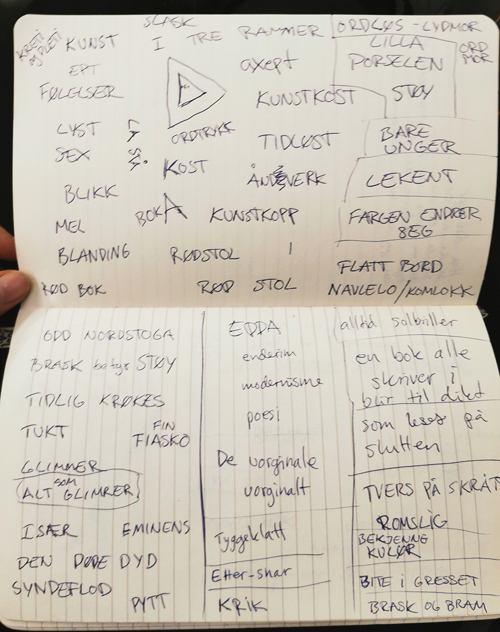 SLASK
KUNST I TRE RAMMER
EPT
FØLELSER
LYST
SEX
BLIKK
MEL
BLANDING
RØD BOK
ORDTRYKK
KOST
BOKA
RØDSTOL
RØD STOL
axept
KUNSTKOST
TIDLØST
ÅNDSVERK
KUNSTKOPP
ORDLØS - LYDMOR
LILLA
PORSELEN
ORD
MOR
STØY
BARE
UNGER
LEKENT
FARGEN ENDRER
SEG
FLATT BORD
NAVLELO/KOMLOKK
ODD NORDSTOGA
BRASK betyr STØY
TIDLIG KRØKES
TUKT
FIN
FIASKO
GLIMMER
SOM
ALT GLIMRER
ISÆR EMINENS
DEN DØDE DYD
SYNDEFLOD
PYTT
EDDA
enderim
modernisme
poesi
De uorginale
uorginalt
Tyggeklatt
Etter-snar
KRIK
alltid solbriller
en bok alle
skriver i
blir til dikt
som leses på
slutten
TVERS PÅ SKRÅT
ROMSLIG
BEKJENNE
KULØR
BITE I GRESSET
BRASK OG BRAM